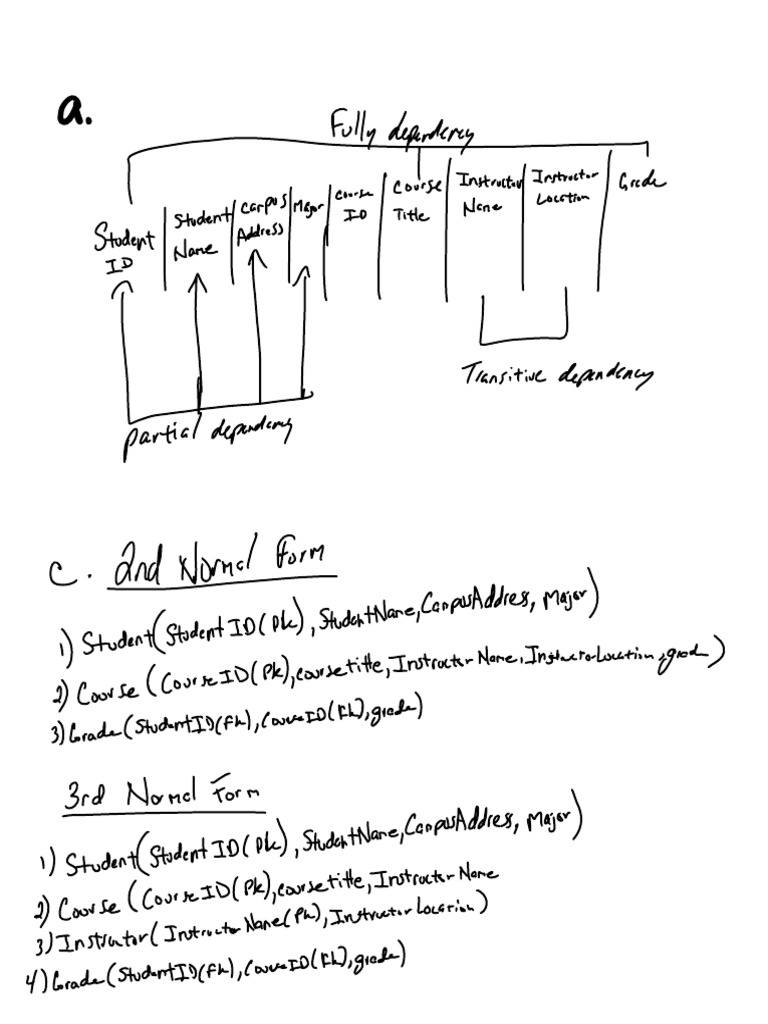 a.
Fully dependency
Student ID | Student Name | Campus Address | Major | Course ID | Course Title | Instructor Name | Instructor Location | Grade
partial dependency
Transitive dependency
C. 2nd Normal Form
1) Student(StudentID(Pk), StudentName, CampusAddres, Major)
2) Course (CourseID(Pk), coursetitle, InstructorName, InstructorLocation, grade)
3) Grade(StudentID(fk), CourseID(fk), grade)
3rd Normal Form
1) Student(StudentID(Pk), StudentName, CampusAddres, Major)
2) Course (CourseID(Pk), coursetitle, InstructorName
3) Instructor(InstructorName(Pk), InstructorLocation)
4) Grade(StudentID(fk), CourseID(fk), grade)